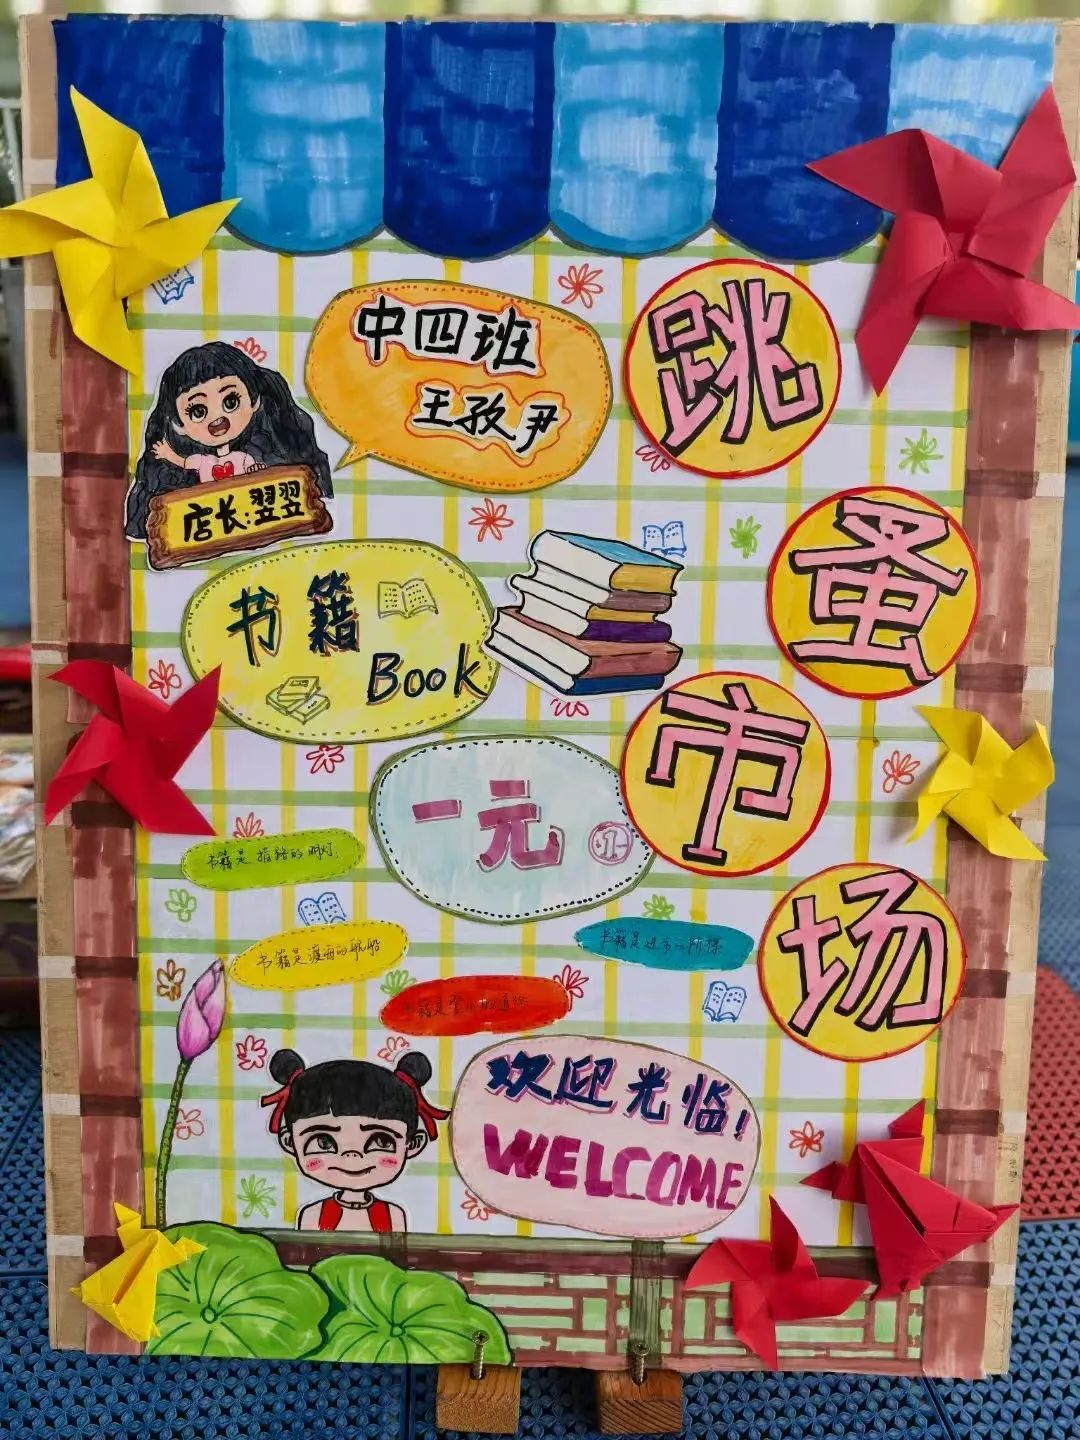 跳蚤市场
中四班
王孜尹
店长:翌翌
书籍
Book
一元
1
书籍是指路的明灯,
书籍是渡海的航船
书籍是进步的阶梯
欢迎光临!
WELCOME